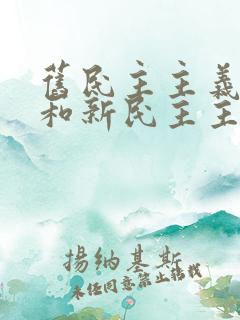 舊民主主義
和新民主主
揚納基斯
未经同意禁止转载